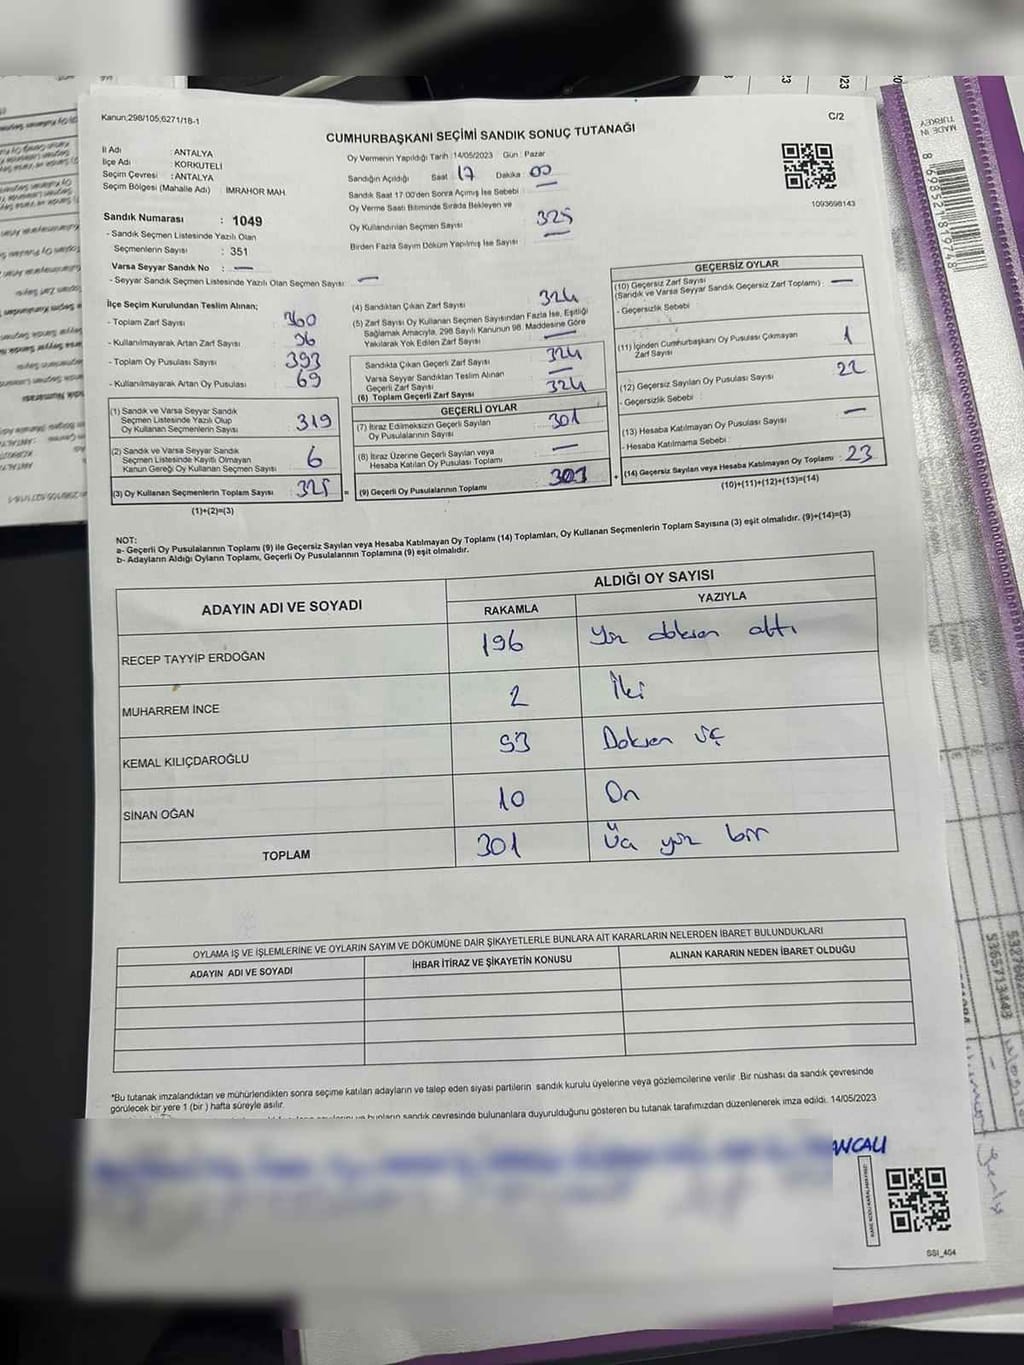 Kanun;298/105;6271/18-1
C/2
CUMHURBAŞKANI SEÇİMİ SANDIK SONUÇ TUTANAĞI
İl Adı : ANTALYA
İlçe Adı : KORKUTELİ
Seçim Çevresi : ANTALYA
Seçim Bölgesi (Mahalle Adı) : İMRAHOR MAH.
Oy Vermenin Yapıldığı Tarih :14/05/2023 Gün : Pazar
Sandığın Açıldığı Saat 17 Dakika 00
Sandık Saat 17.00'den Sonra Açımış İse Sebebi —
Oy Verme Saati Bitiminde Sırada Bekleyen ve
Oy Kullandırılan Seçmen Sayısı 325
Birden Fazla Sayım Döküm Yapılmış İse Sayısı —
1093698143
Sandık Numarası : 1049
- Sandık Seçmen Listesinde Yazılı Olan
Seçmenlerin Sayısı : 351
Varsa Seyyar Sandık No : —
- Seyyar Sandık Seçmen Listesinde Yazılı Olan Seçmen Sayısı: —
İlçe Seçim Kurulundan Teslim Alınan;
- Toplam Zarf Sayısı 360
- Kullanılmayarak Artan Zarf Sayısı 36
- Toplam Oy Pusulası Sayısı 393
- Kullanılmayarak Artan Oy Pusulası 69
(1) Sandık ve Varsa Seyyar Sandık
Seçmen Listesinde Yazılı Olup
Oy Kullanan Seçmenlerin Sayısı 319
(2) Sandık ve Varsa Seyyar Sandık
Seçmen Listesinde Kayıtlı Olmayan
Kanun Gereği Oy Kullanan Seçmen Sayısı 6
(3) Oy Kullanan Seçmenlerin Toplam Sayısı 325 =
(1)+(2)=(3)
(4) Sandıktan Çıkan Zarf Sayısı 324
(5) Zarf Sayısı Oy Kullanan Seçmen Sayısından Fazla İse, Eşitliği
Sağlamak Amacıyla, 298 Sayılı Kanunun 98. Maddesine Göre
Yakılarak Yok Edilen Zarf Sayısı —
Sandıkta Çıkan Geçerli Zarf Sayısı 324
Varsa Seyyar Sandıktan Teslim Alınan
Geçerli Zarf Sayısı —
(6) Toplam Geçerli Zarf Sayısı 324
GEÇERLİ OYLAR
(7) İtiraz Edilmeksizin Geçerli Sayılan
Oy Pusulalarının Sayısı 301
(8) İtiraz Üzerine Geçerli Sayılan veya
Hesaba Katılan Oy Pusulası Toplamı —
(9) Geçerli Oy Pusulalarının Toplamı 301 +
GEÇERSİZ OYLAR
(10) Geçersiz Zarf Sayısı
(Sandık ve Varsa Seyyar Sandık Geçersiz Zarf Toplamı) : —
- Geçersizlik Sebebi :
(11) İçinden Cumhurbaşkanı Oy Pusulası Çıkmayan
Zarf Sayısı 1
(12) Geçersiz Sayılan Oy Pusulası Sayısı 22
- Geçersizlik Sebebi :
(13) Hesaba Katılmayan Oy Pusulası Sayısı —
- Hesaba Katılmama Sebebi :
(14) Geçersiz Sayılan veya Hesaba Katılmayan Oy Toplamı : 23
(10)+(11)+(12)+(13)=(14)
NOT:
a- Geçerli Oy Pusulalarının Toplamı (9) ile Geçersiz Sayılan veya Hesaba Katılmayan Oy Toplamı (14) Toplamları, Oy Kullanan Seçmenlerin Toplam Sayısına (3) eşit olmalıdır. (9)+(14)=(3)
b- Adayların Aldığı Oyların Toplamı, Geçerli Oy Pusulalarının Toplamına (9) eşit olmalıdır.
ADAYIN ADI VE SOYADI
ALDIĞI OY SAYISI
RAKAMLA YAZIYLA
RECEP TAYYİP ERDOĞAN 196 Yüz doksan altı
MUHARREM İNCE 2 İki
KEMAL KILIÇDAROĞLU 93 Doksan üç
SİNAN OĞAN 10 On
TOPLAM 301 Üç yüz bir
OYLAMA İŞ VE İŞLEMLERİNE VE OYLARIN SAYIM VE DÖKÜMÜNE DAİR ŞİKAYETLERLE BUNLARA AİT KARARLARIN NELERDEN İBARET BULUNDUKLARI
ADAYIN ADI VE SOYADI İHBAR İTİRAZ VE ŞİKAYETİN KONUSU ALINAN KARARIN NEDEN İBARET OLDUĞU
*Bu tutanak imzalandıktan ve mühürlendikten sonra seçime katılan adayların ve talep eden siyasi partilerin sandık kurulu üyelerine veya gözlemcilerine verilir .Bir nüshası da sandık çevresinde
görülecek bir yere 1 (bir ) hafta süreyle asılır.
bunların sandık çevresinde bulunanlara duyurulduğunu gösteren bu tutanak tarafımızdan düzenlenerek imza edildi. 14/05/2023
ANCALI
SSI_404
MADE IN
TURKEY
8 698521 819748